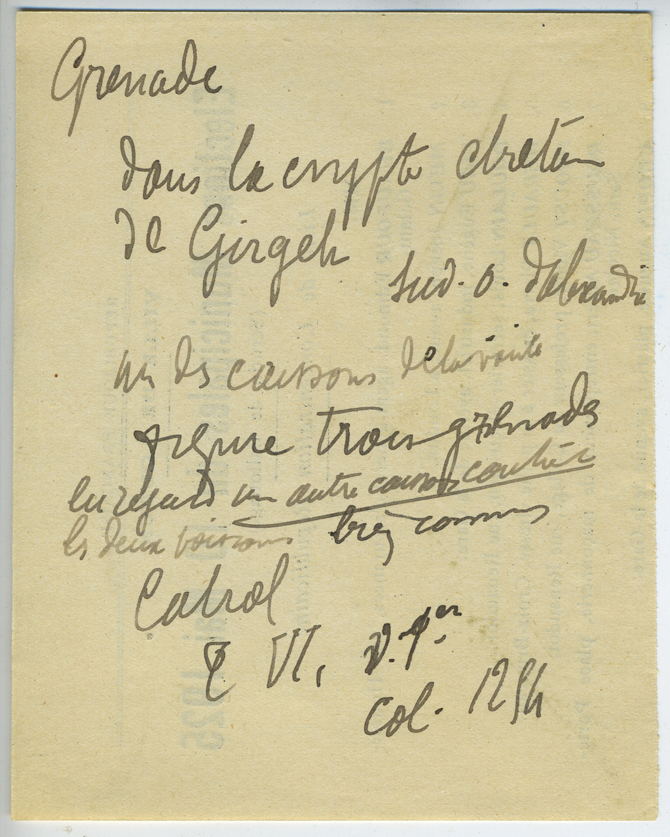 Grenade
dans la crypte chrétien
de Girgeh
Sud. O. d'Alexandrie
un des caissons de la voute
figure trois grenades
en regard un autre caisson
les deux poissons très connus
Cabrol
T VI, V. 1er
Col. 1254